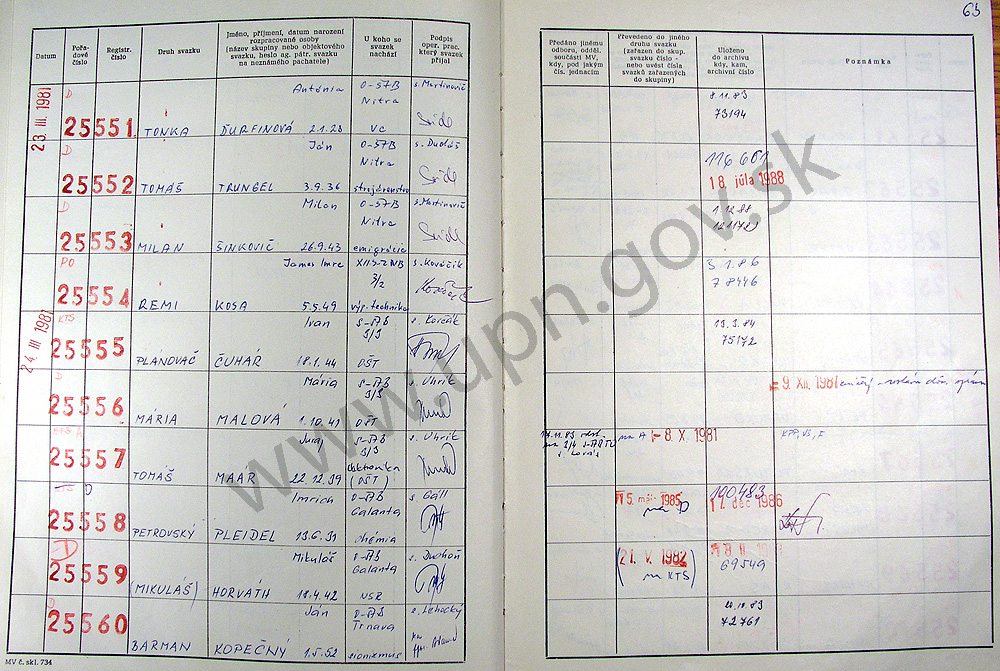 65
Datum
Pořadové číslo
Registr. číslo
Druh svazku
Jméno, příjmení, datum narození rozpracované osoby (název skupiny nebo objektového svazku, heslo ag. pátr. svazku na neznámého pachatele)
U koho se svazek nachází
Podpis oper. prac. který svazek přijal
Předáno jinému odboru, odděl. součásti MV, kdy, pod jakým čís. jednacím
Převedeno do jiného druhu svazku (zařazen do skup. svazku číslo - nebo uvést čísla svazků zařazených do skupiny)
Uloženo do archivu kdy, kam, archivní číslo
Poznámka
23 III 1981
D
25551
TONKA
Antónia
ĎURFINOVÁ 2.1.28
0-ŠTB
Nitra
VC
s. Martinovič
8.11.83
73194
D
25552
TOMÁŠ
Ján
TRUNGEL 3.9.36
0-ŠTB
Nitra
strojárenstvo
s. Dudáš
116601
18. júla 1988
D
25553
MILAN
Milan
ŠINKOVIČ 26.9.43
0-ŠTB
Nitra
emigrácia
s. Martinovič
1.12.88
PO
25554
REMI
James Imre
KOSA 5.5.49
3/2
výp. technika
s. Kováčik
3.1.86
78446
24 III 1981
KTS
25555
PLANOVAČ
Ivan
ČUHÁR 18.1.44
S-ŠTB
3/3
OŠT
s. Korčák
75172
D
25556
MÁRIA
Mária
MALOVÁ 1.10.41
S-ŠTB
3/3
OŠT
s. Uhrik
9. XII. 1981
25557
TOMÁŠ
Juraj
MAAR 22.12.39
S-ŠTB
elektronika
(OŠT)
s. Uhrik
na A
- 8. X. 1981
KTS D
25558
PETROVSKÝ
Imrich
PLEIDEL 13.6.31
0-ŠTB
Galanta
chémia
s. Gáll
15. máj 1985
na D
100483
17. dec 1986
D
25559
(MIKULÁŠ)
Mikuláš
HORVÁTH 18.4.42
0-ŠTB
Galanta
s. Duchoň
(21. V. 1982
na KTS)
69549
D
25560
BARMAN
Ján
KOPEČNÝ 1.5.52
0-ŠTB
Trnava
sionizmus
s. Lehocký
20.10.83
72761
MV č. skl. 734
www.upn.gov.sk